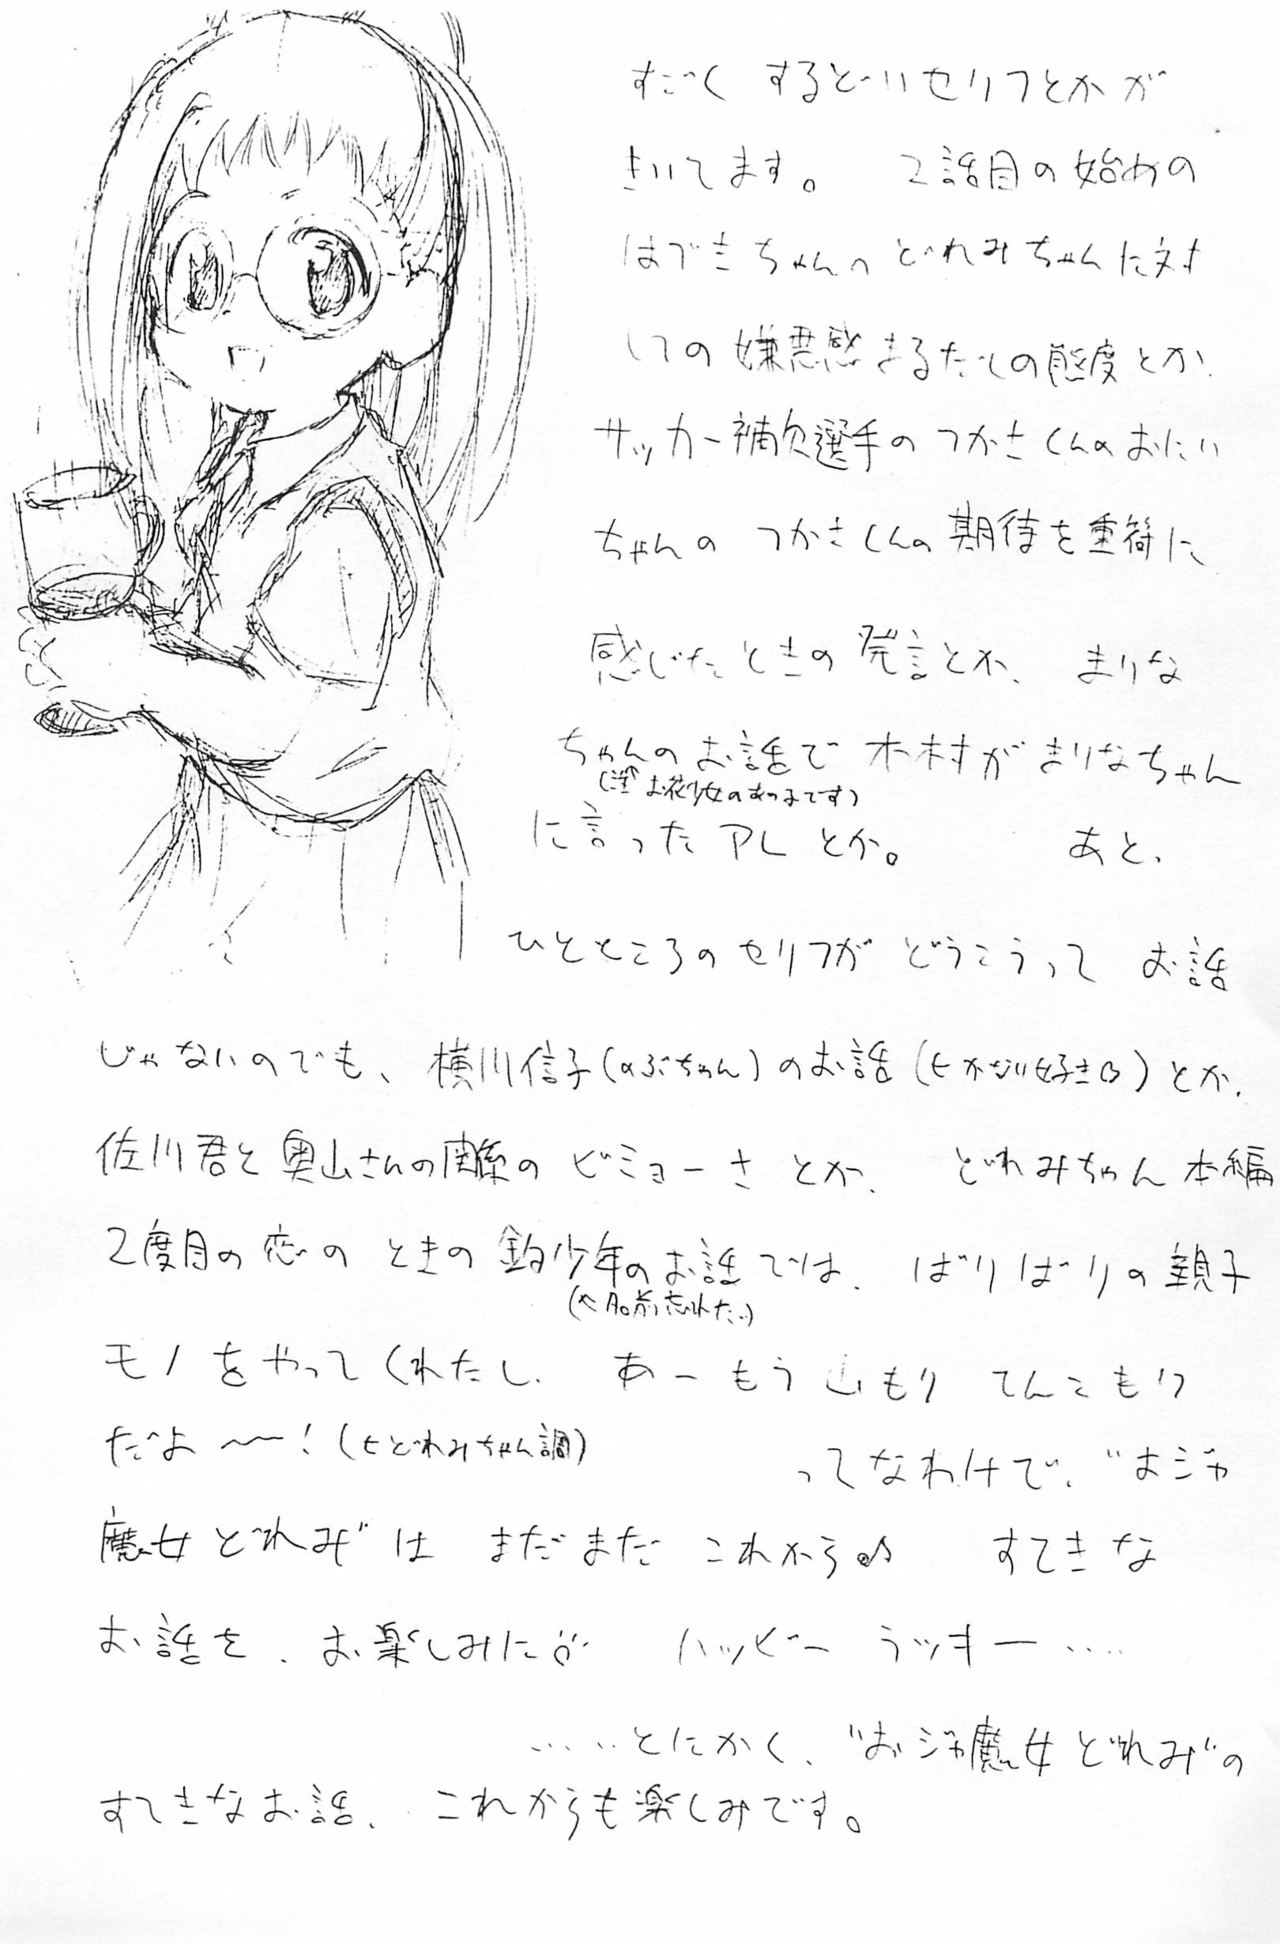 すごく するどいセリフとかが
きいてます。 2話目の始めの
はづきちゃんの どれみちゃんに対
しての 嫌悪感まるだしの態度とか、
サッカー補欠選手の つかさくんのおにい
ちゃんの つかさくんの 期待を重荷に
感じたときの 発言とか、 まりな
ちゃんのお話で 木村が まりなちゃん
(注↑ お花少女のあの子です)
に言った アレ とか。 あと、
ひとところのセリフが どうこうって お話
じゃないのでも、 横川信子(のぶちゃん)のお話(←かなり好き)とか、
佐川君と 奥山さんの関係の ビミョーさ とか、 どれみちゃん本編
2度目の 恋の ときの 釣り少年のお話では、 ばりばりの親子
(← 名前忘れた)
モノをやってくれたし、 あーもう 山もり てんこもり
だよ〜〜!(←どれみちゃん調)
ってなわけで、"おジャ
魔女どれみ"は まだまだ これから♪ すてきな
お話を、お楽しみに ハッピー ラッキー‥‥
‥‥とにかく、"おジャ魔女どれみ"の
すてきなお話、 これからも楽しみです。